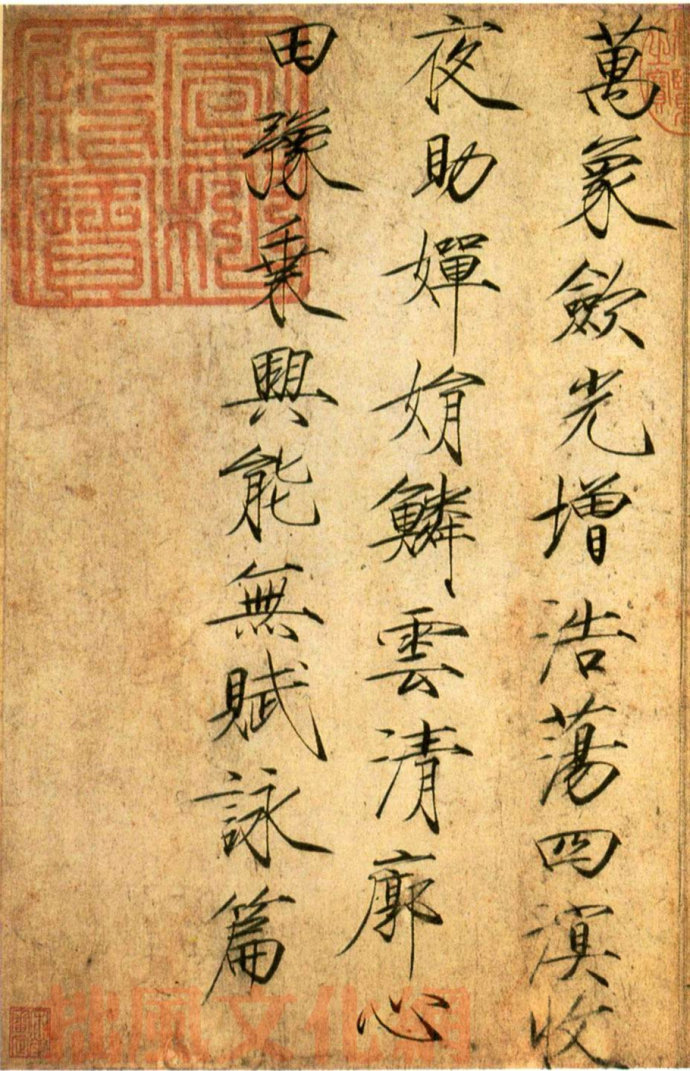 萬象歛光增浩蕩四溟收
夜助嬋娟鱗雲清廓心
田豫乘興能無賦詠篇
拙風文化網